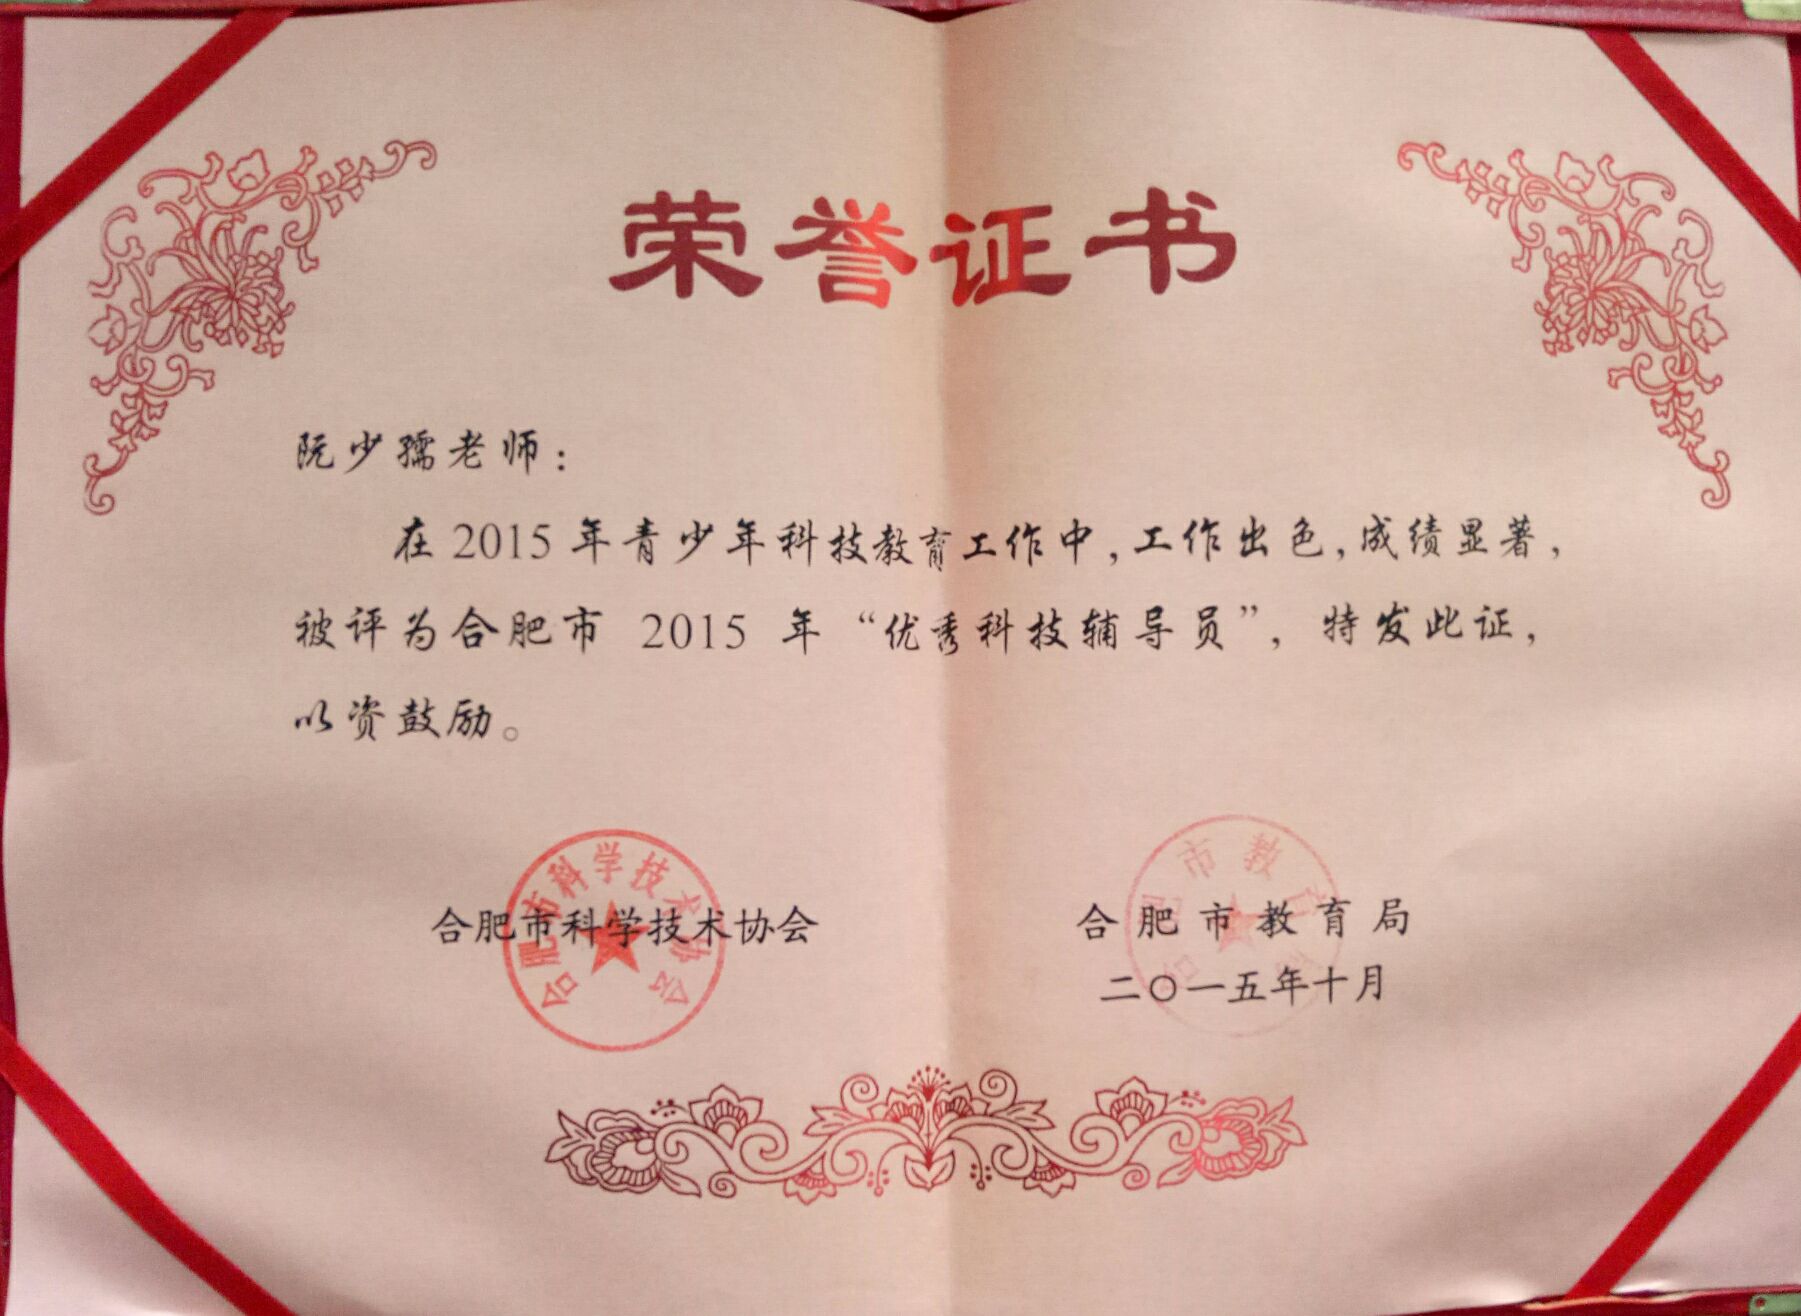 荣誉证书
阮少孺老师：
在2015年青少年科技教育工作中，工作出色，成绩显著，
被评为合肥市 2015 年“优秀科技辅导员”，特发此证，
以资鼓励。
合肥市科学技术协会
合肥市科学技术协会
合肥市教育局
合肥市教育局
二〇一五年十月